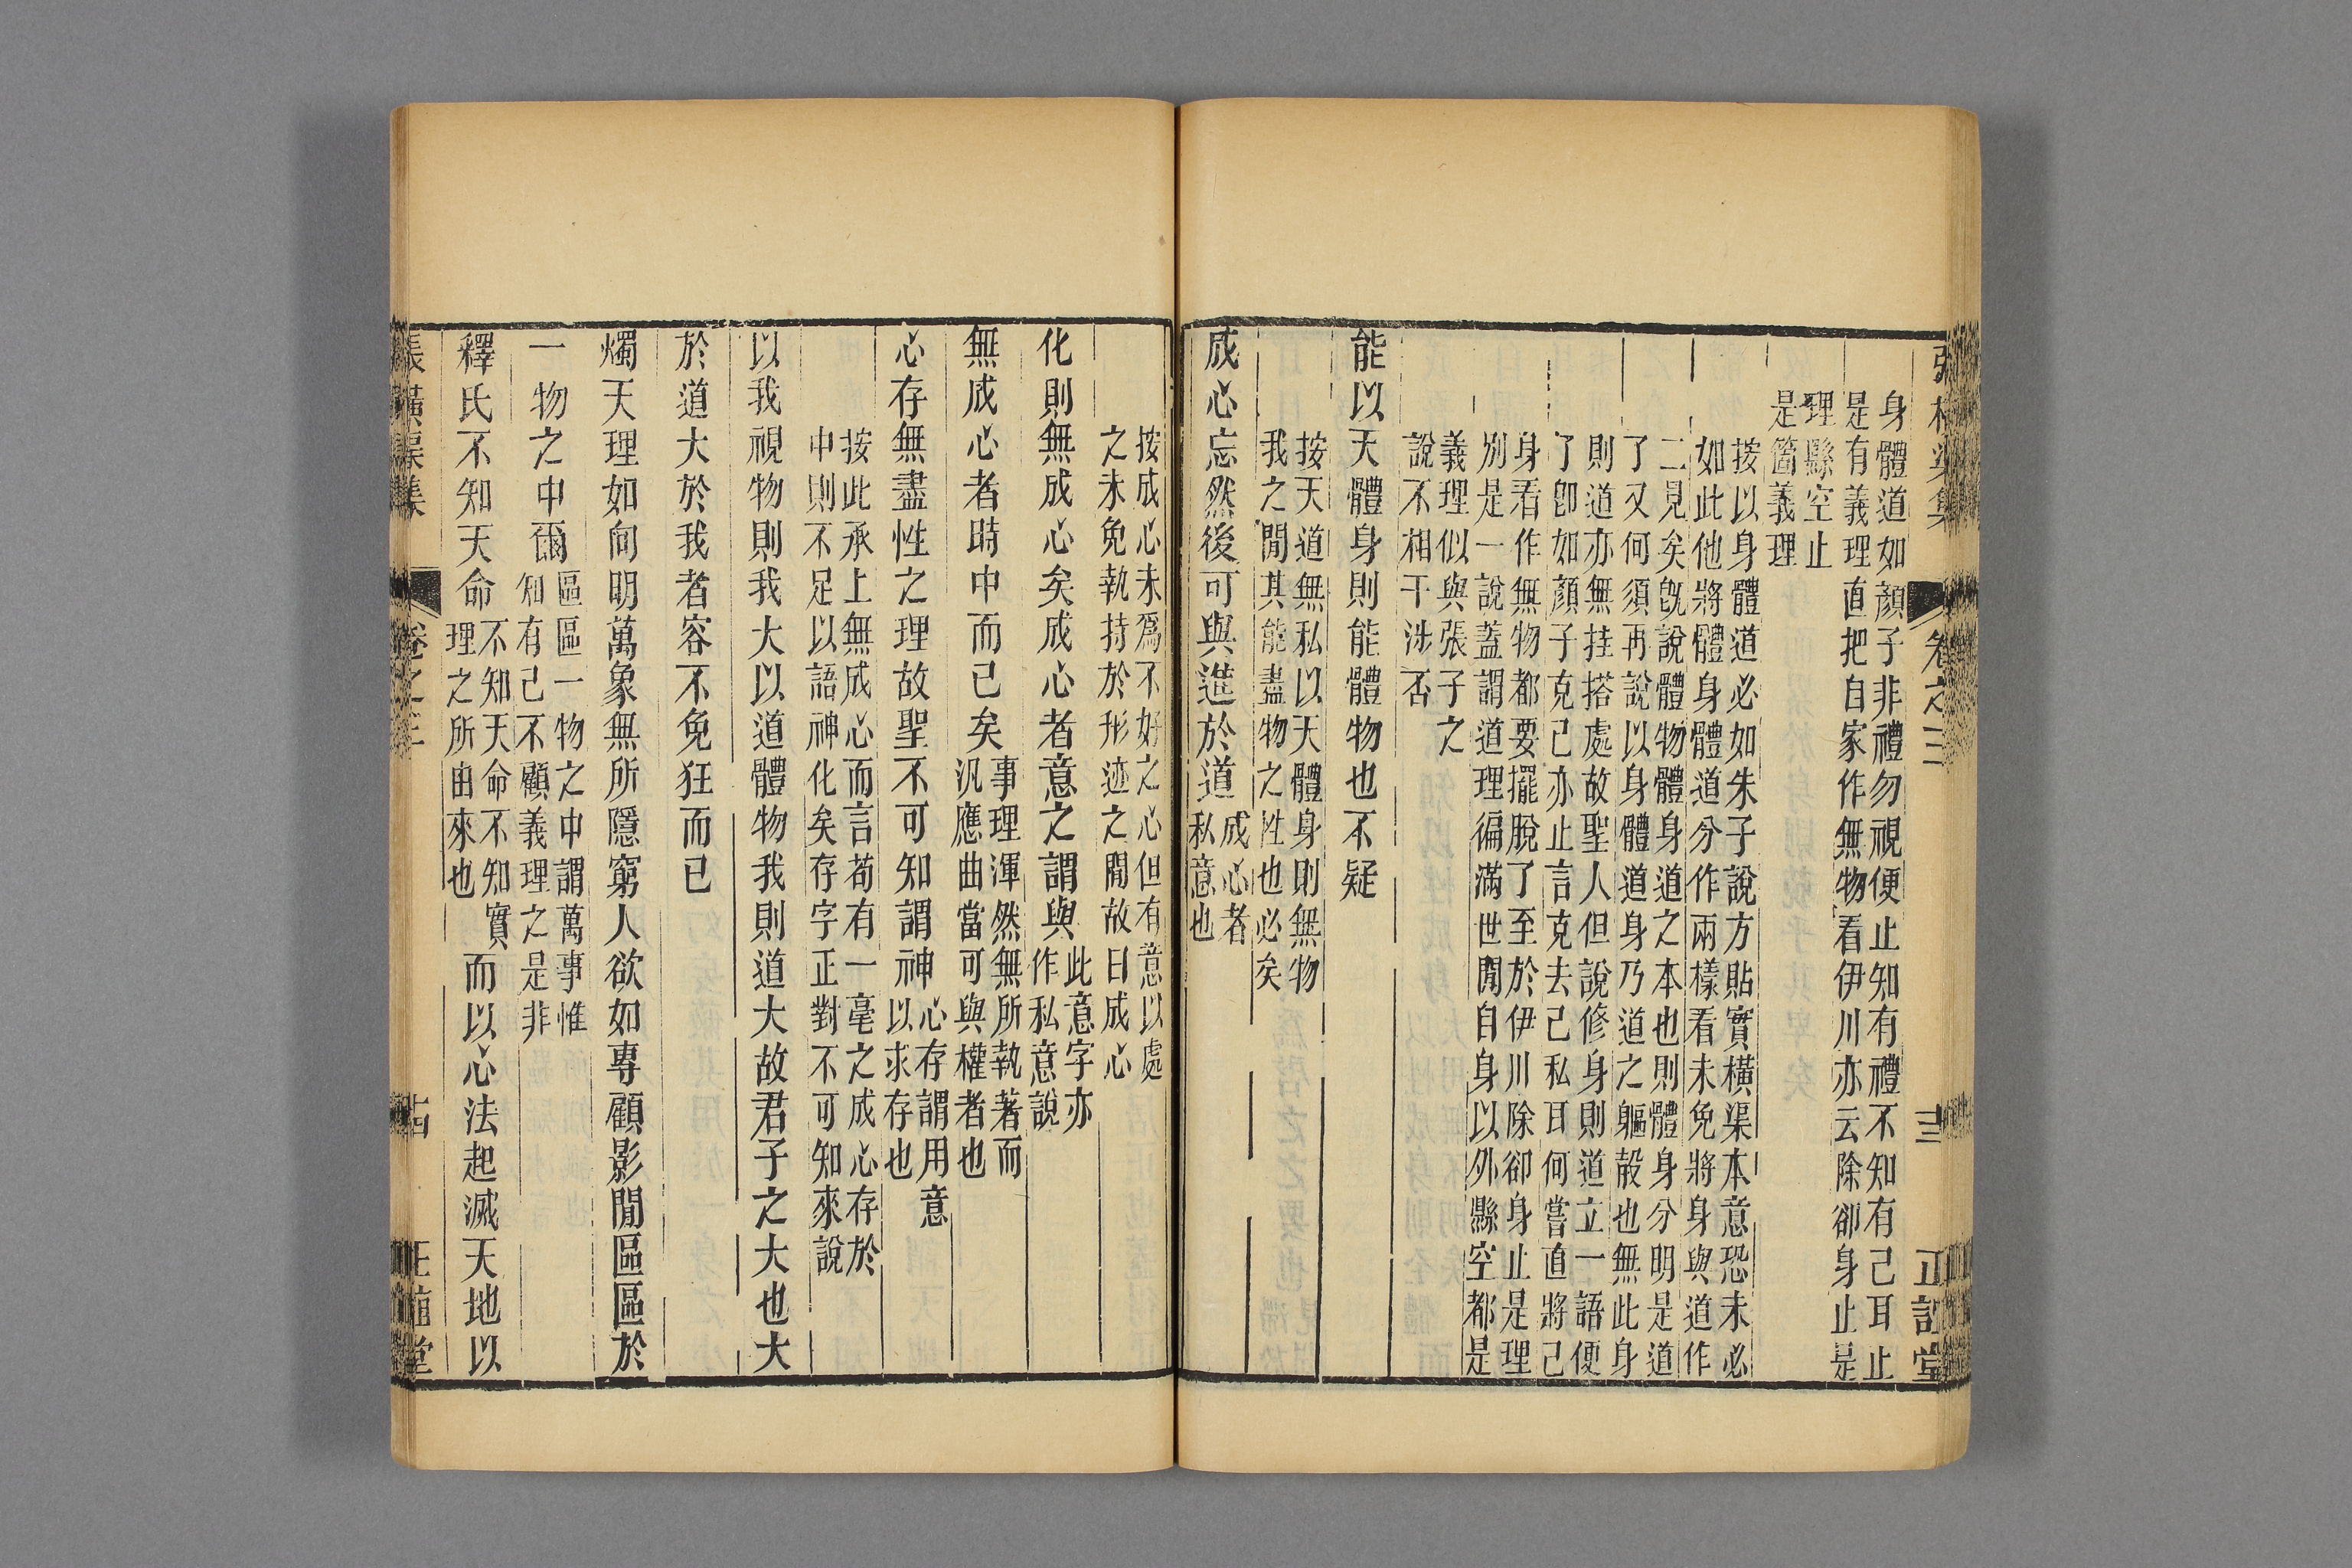 張橫渠集 卷之三 三 正誼堂
身體道如顏子非禮勿視便止知有禮不知有己耳止
是有義理直把自家作無物看伊川亦云除卻身止是
理縣空止
是箇義理
按以身體道必如朱子說方貼實橫渠本意恐未必
如此他將體身體道分作兩樣看未免將身與道作
二見矣旣說體物體身道之本也則體身分明是道
了又何須再說以身體道身乃道之軀殼也無此身
則道亦無挂搭處故聖人但說修身則道立一語便
了卽如顏子克己亦止言克去己私耳何嘗直將己
身看作無物都要擺脫了至於伊川除卻身止是理
別是一說蓋謂道理徧滿世閒自身以外縣空都是
義理似與張子之
說不相干涉否
能以天體身則能體物也不疑
按天道無私以天體身則無物
我之閒其能盡物之性也必矣
成心忘然後可與進於道
成心者
私意也
按成心未爲不好之心但有意以處
之未免執持於形迹之閒故曰成心
化則無成心矣成心者意之謂與
此意字亦
作私意說
無成心者時中而已矣
事理渾然無所執著而
汎應曲當可與權者也
心存無盡性之理故聖不可知謂神
心存謂用意
以求存也
按此承上無成心而言苟有一毫之成心存於
中則不足以語神化矣存字正對不可知來說
以我視物則我大以道體物我則道大故君子之大也大
於道大於我者容不免狂而已
燭天理如向明萬象無所隱窮人欲如專顧影閒區區於
一物之中爾
區區一物之中謂萬事惟
知有己不顧義理之是非
釋氏不知天命
不知天命不知實
理之所由來也
而以心法起滅天地以
張橫渠集 卷之三 古 正誼堂